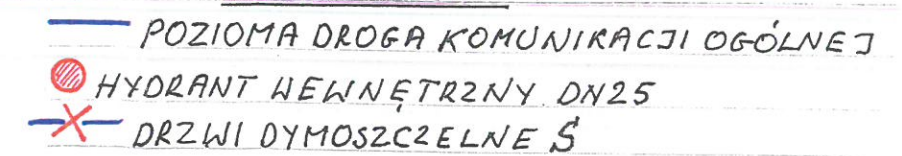 POZIOMA DROGA KOMUNIKACJI OGÓLNEJ
HYDRANT WEWNĘTRZNY DN25
DRZWI DYMOSZCZELNE Ś